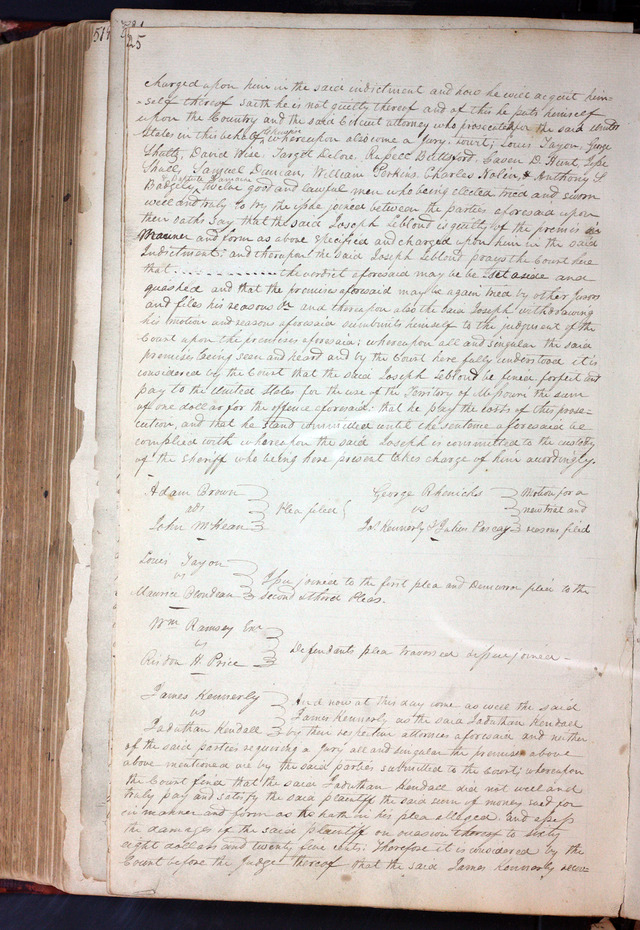 514
25
charged upon him in the said indictment and how he will acquit him
self thereof saith he is not guilty thereof and of this he puts himself
upon the Country and the said Circuit attorney who prosecutes for the said United
States in this behalf likewise
whereupon also come a jury towit; Louis Tayon,
Shultz, David Wise, Pepe
Shall, Samuel Duncan, William Perkins, Charles Nolin, & Anthony L
Badgely, twelve good and lawful men who being elected tried and sworn
well and truly to try the issue joined between the parties aforesaid upon
their oaths say that the said Joseph Leblond is guilty of the premises in
Manner and form as above specified and charged upon him in the said
Indictment; and thereupon the said Joseph Leblond prays the Court here
that ............... the verdict aforesaid may be be set aside and
quashed and that the premises aforesaid may be again tried by other Jurors
and files his reasons &c and thereupon also the said Joseph withdrawing
his motion and reasons aforesaid sumbmits himself to the judgment of the
Court upon the premises aforesaid; whereupon all and singular the said
premises being seen and heard and by the Court here fully understood it is
considered by the Court that the said Joseph Leblond be fined forfeit and
pay to the United States for the use of the Territory of Missouri the sum
of one dollar for the offence aforesaid: that he pay the costs of this prose-
cution, and that he stand committed until the sentence aforesaid be
complied with whereupon the said Joseph is committed to the custody
of the Sheriff who being here present takes charge of him accordingly.
Adam Brown
John McKean
Plea filed
George
vs
Jas Kennerly & Julius
Motion for a
new trial and
reasons filed
Louis Tayon
vs
Maurice Blondeau
Issue joined to the first plea and Demurrer filed to the
second & third Pleas.
Wm Ramsey Exr
vs
Risdon H. Price
Defendants plea traversed issue joined -
James Kennerly
vs
Jaduthan Kendall
And now at this day come as well the said
James Kennerly as the said Jaduthan Kendall
by their respective attornies aforesaid and neither
of the said parties requiring a Jury all and singular the premises above
above mentioned are by the said parties submitted to the Court; whereupon
the Court find that the said Jaduthan Kendall did not well and
truly pay and satisfy the said plaintiff the said sum of money sued for
in manner and form as he hath in his plea alleged. And assess
the damages of the said plaintiff on occasion thereof to sixty
eight dollars and twenty five cents. Therefore it is considered by the
Court before the Judges thereof that the said James Kennerly recov-